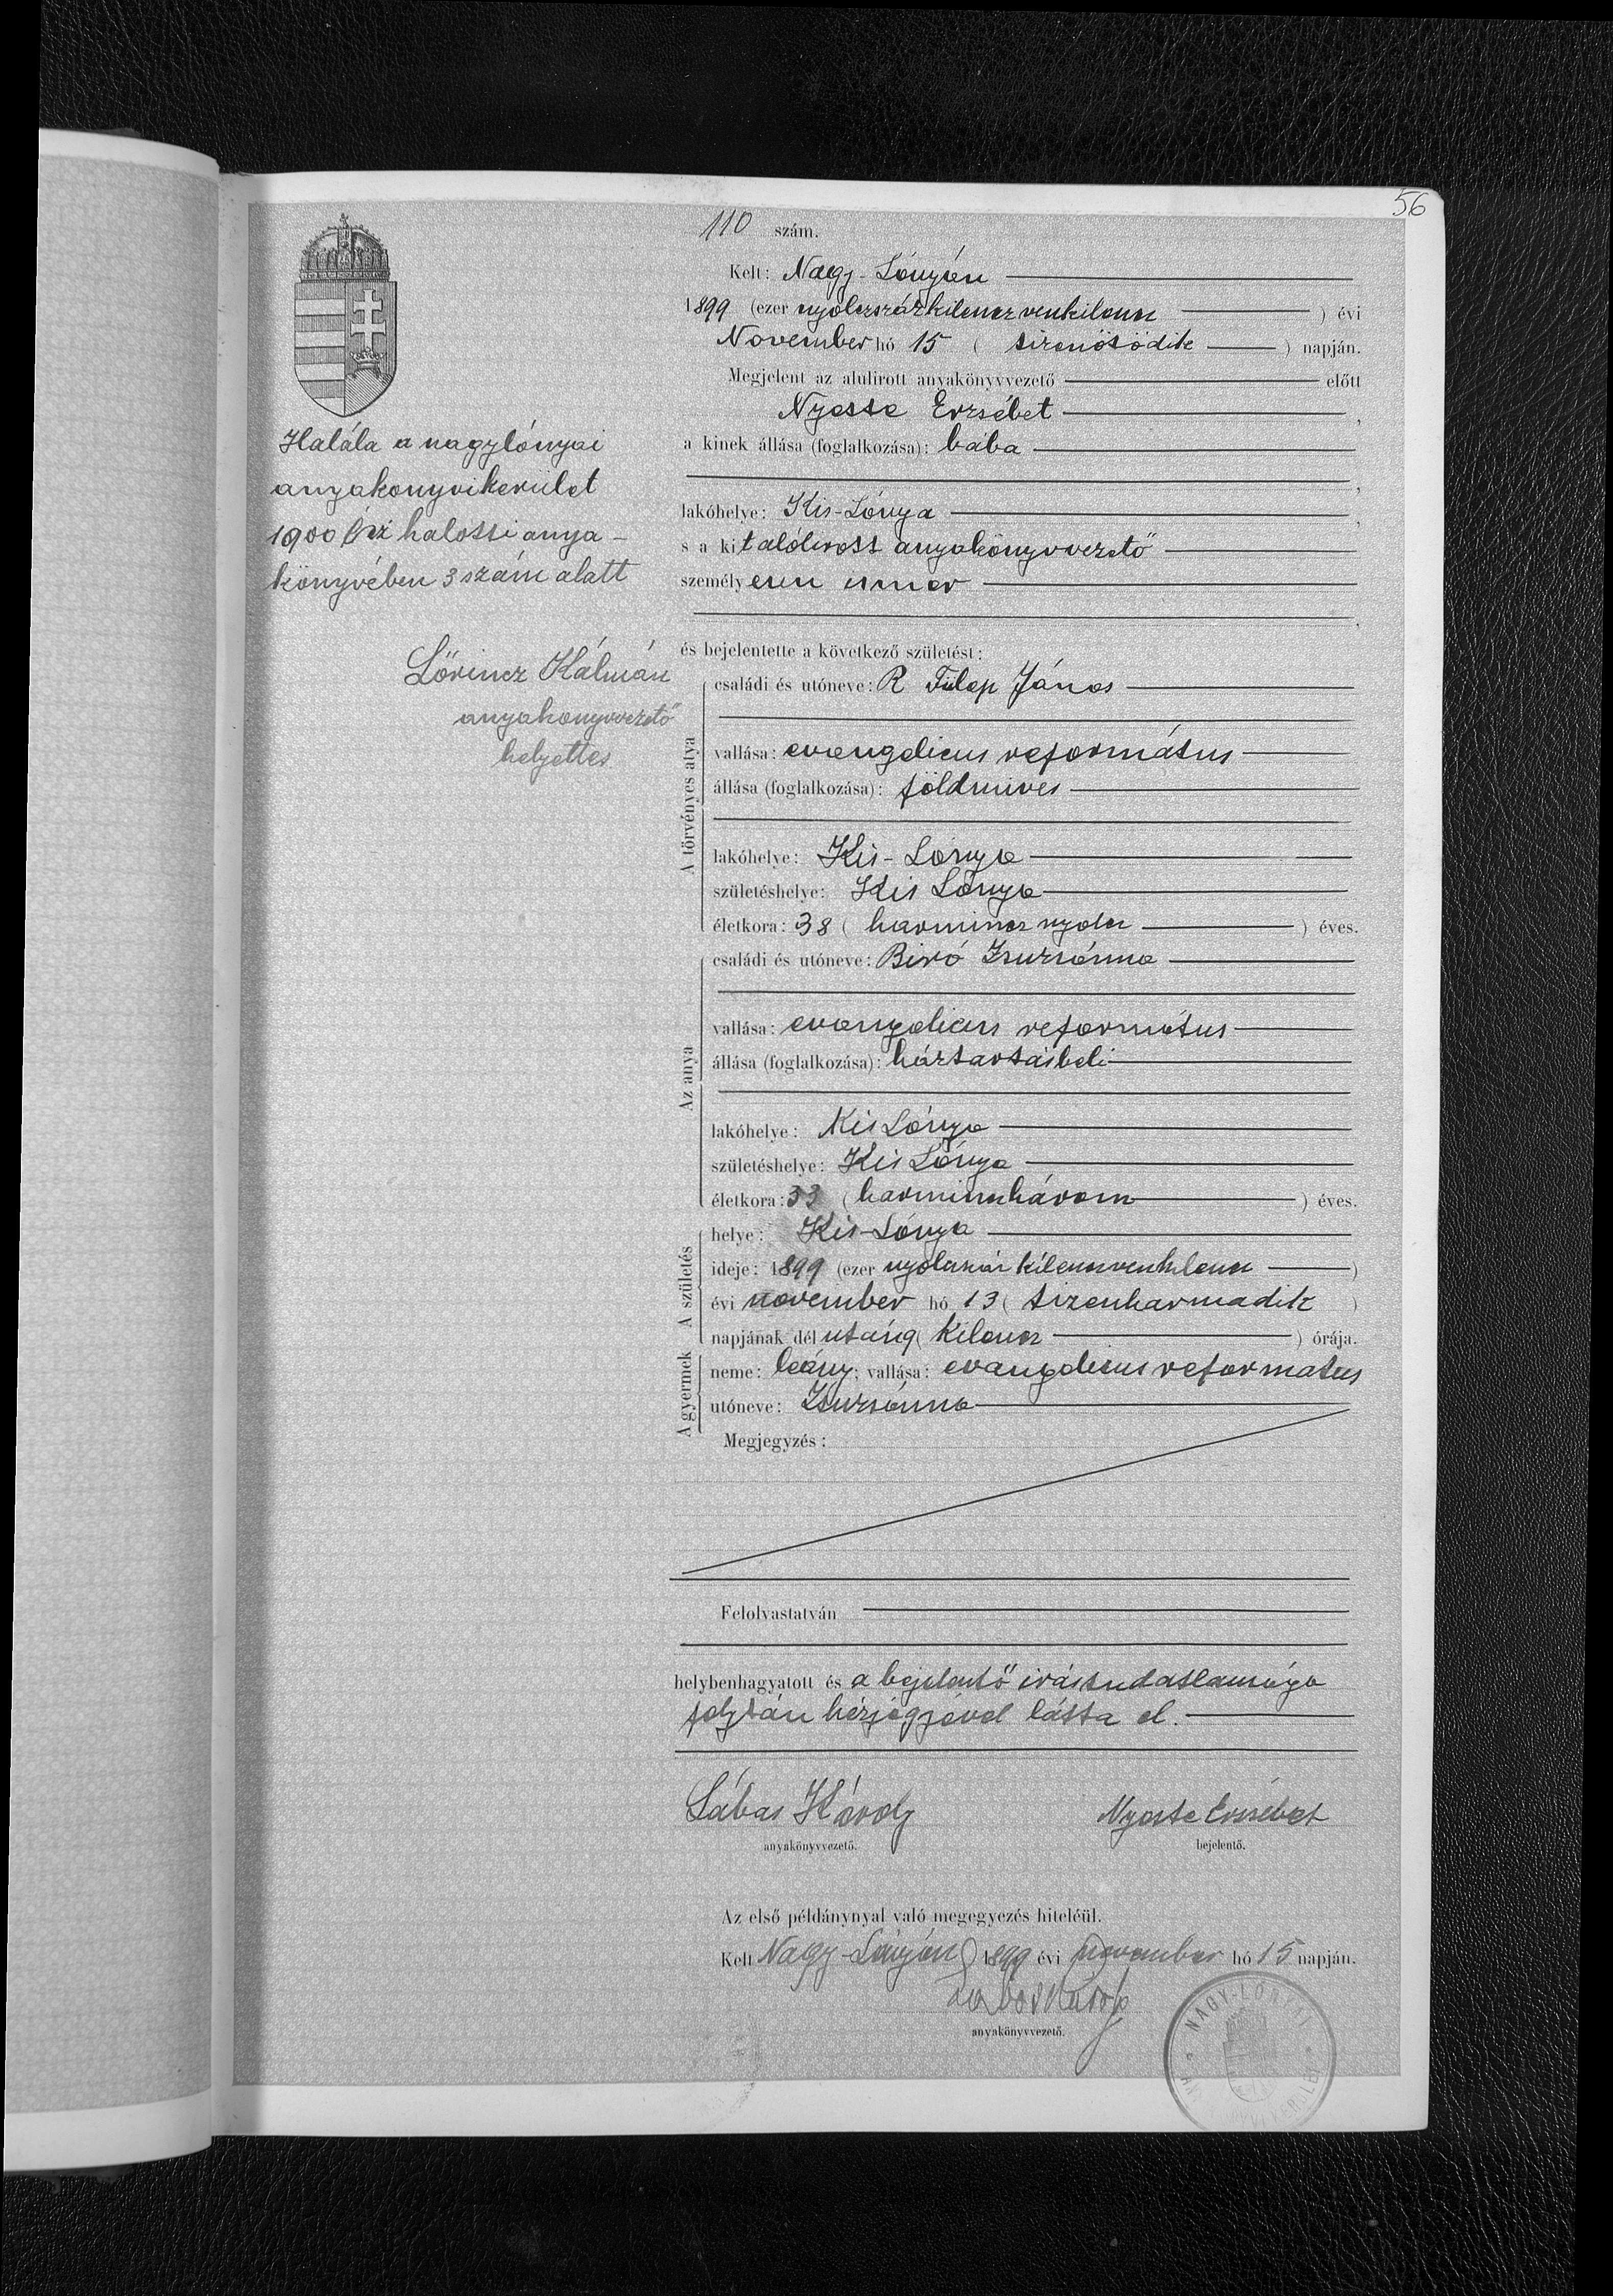 56
110 szám.
Kelt: Nagy-Lónyán
1899 (ezer nyolczszázkilenczvenkilencz) évi
November hó 15 (tizenötödik) napján.
Megjelent az alulirott anyakönyvvezető előtt
Nyeste Erzsébet,
a kinek állása (foglalkozása): bába
,
lakóhelye: Kis-Lónya,
s a kit alólirott anyakönyvvezető
személyesen ismer
,
és bejelentette a következő születést:
A törvényes atya
családi és utóneve: R Fülep János
vallása: evangelicus református
állása (foglalkozása): földmives
lakóhelye: Kis-Lónya
születéshelye: Kis Lónya
életkora: 38 (harmincz nyolcz) éves.
Az anya
családi és utóneve: Biró Zsuzsánna
vallása: evangelicus református
állása (foglalkozása): háztartásbeli
lakóhelye: Kis Lónya
születéshelye: Kis Lónya
életkora: 33 (harminczhárom) éves.
A születés
helye: Kis-Lónya
ideje: 1899 (ezer nyolczszáz kilenczvenkilencz)
évi november hó 13 (tizenharmadik)
napjának dél után 9 (kilencz) órája.
A gyermek
neme: leány; vallása: evangelicus reformatus
utóneve: Zsuzsánna
Megjegyzés:
Felolvastatván
helybenhagyatott és a bejelentő irástudatlansága
folytán kézjegyével látta el.
Lábas Károly
anyakönyvvezető.
Nyeste Erzsébet
bejelentő.
Az első példánynyal való megegyezés hiteléül.
Kelt Nagy-Lónyán 1899 évi november hó 15 napján.
Lábas Károly
anyakönyvvezető.
NAGY-LÓNYAI
Halála a nagylónyai
anyakonyvikerület
1900 évi halotti anya-
könyvében 3 szám alatt
Lőrincz Kálmán
anyakonyvvezető
helyettes